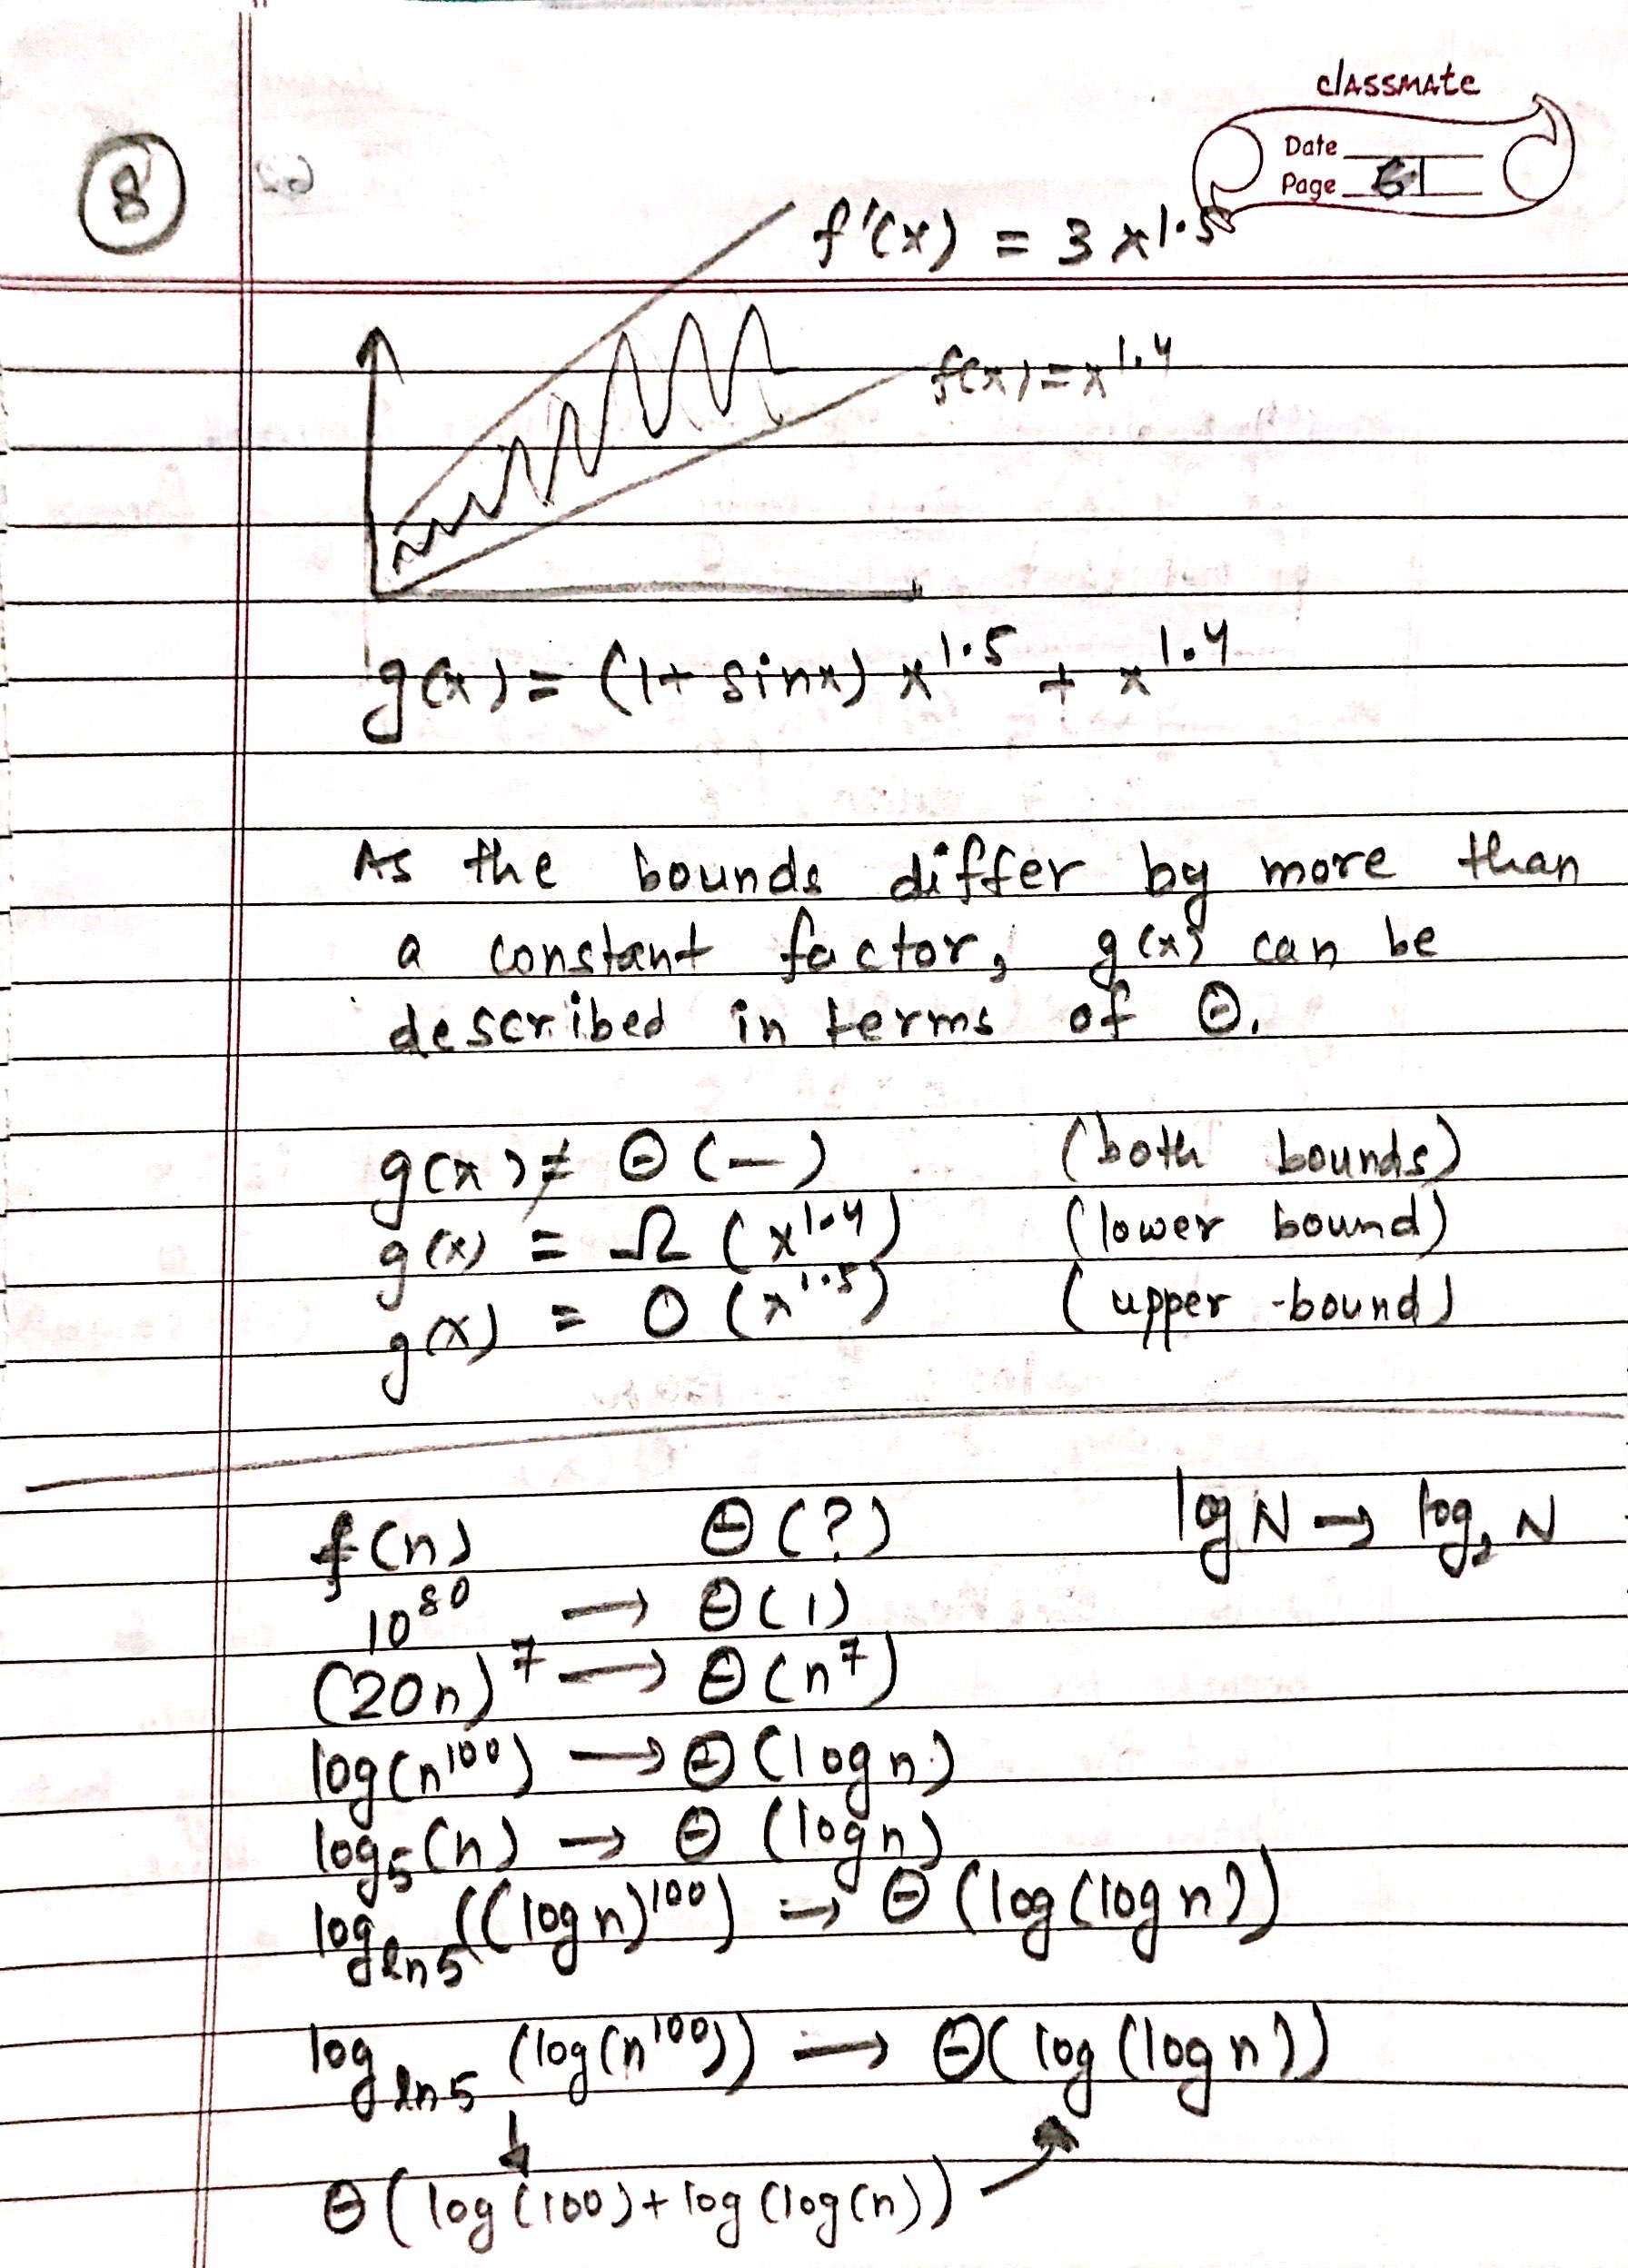 classmate
Date
Page 61
8
f'(x) = 3x^1.5
f(x) = x^1.4
g(x) = (1+ sinx) x^1.5 + x^1.4
As the bounds differ by more than
a constant factor, g(x) can be
described in terms of Θ.
g(x) ≠ Θ(—) (both bounds)
g(x) = Ω (x^1.4) (lower bound)
g(x) = O (x^1.5) (upper-bound)
f(n) Θ(?) log N → log₂ N
10^80 → Θ(1)
(20n)^7 → Θ(n^7)
log(n^100) → Θ(logn)
log₅(n) → Θ (logn)
log_ln5((logn)^100) → Θ (log(logn))
log_ln5 (log(n^100)) → Θ( log (logn))
↓
Θ( log(100)+log(log(n))